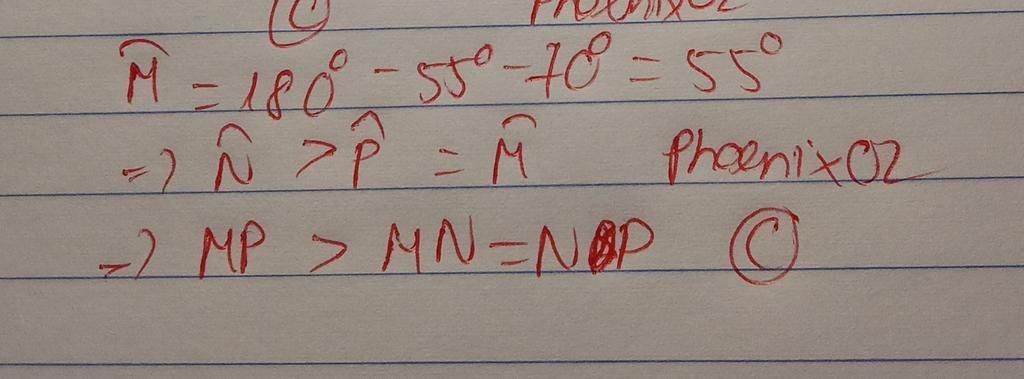 Ⓒ PhoenixO2
M̂ = 180° - 55° - 70° = 55°
=) N̂ > P̂ = M̂ PhoenixO2
=) MP > MN = NP Ⓒ